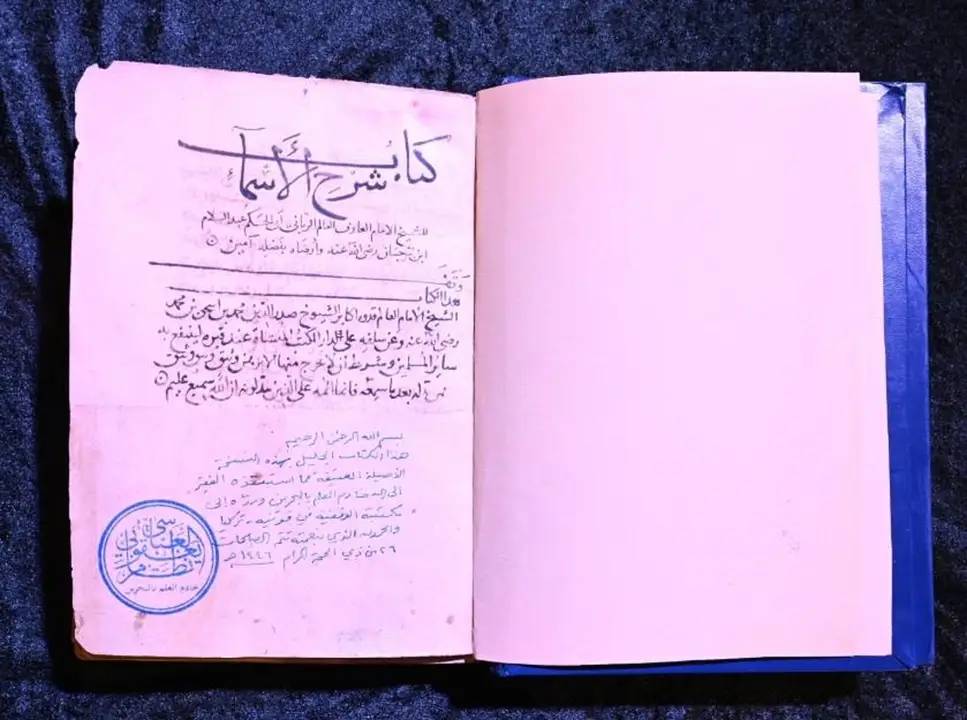 كتاب
شرح الأسماء
للشيخ الامام العارف العالم الرباني أبى الحكم عبد السلام
ابن برجان رضى الله عنه وأرضاه بفضله آمين
وقف
هذا الكتاب
الشيخ الامام العالم قدوة اكابر الشيوخ صدر الدين محمد بن اسحق بن محمد
رضى الله عنه وعن سلفه على دار الكتب المنشأة عند قبره لينتفع به
سائر المسلمين وشرط ان لا تخرج منها الا برهن وثيق
فمن بدله بعد ما سمعه فانما اثمه على الذين يبدلونه ان الله سميع عليم
بسم الله الرحمن الرحيم
هذا الكتاب الجليل بهذه النسخة
الأصيلة العتيقة مما استنقذه الفقير
إلى الله خادم العلم بالبحرين ورده إلى
مكتبته الوقفية في قونية - تركيا
والحمد لله الذي بنعمته تتم الصالحات
٢٦ من ذي الحجة الحرام ١٤٤٦ هـ
نظام يعقوبي العباسي
خادم العلم بالبحرين